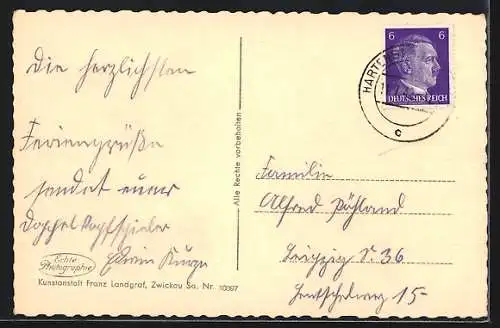 Die herzlichsten
Feriengrüße
sendet euer
Doppelkopfspieler
Echte
Photographie
Kunstanstalt Franz Landgraf, Zwickau Sa. Nr. 10387
Alle Rechte vorbehalten
6 6
DEUTSCHES REICH
HARTEN
c
Familie
Alfred Pöhland
Leipzig S. 36
15-